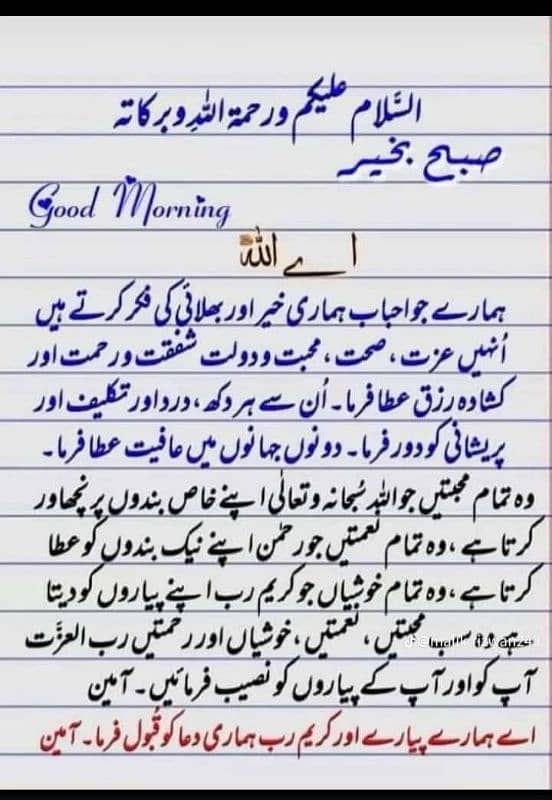 السَّلام علیکم ورحمۃ اللہِ وبرکاتہ
صبح بخیر
Good Morning
اے اللہ
ہمارے جو احباب ہماری خیر اور بھلائی کی فکر کرتے ہیں
اُنہیں عزت، صحت، محبت و دولت شفقت و رحمت اور
کشادہ رزق عطا فرما۔ اُن سے ہر دکھ، درد اور تکلیف اور
پریشانی کو دور فرما۔ دونوں جہانوں میں عافیت عطا فرما۔
وہ تمام محبتیں جو اللہ سُبحانہ و تعالٰی اپنے خاص بندوں پر نچھاور
کرتا ہے، وہ تمام نعمتیں جو رحمٰن اپنے نیک بندوں کو عطا
کرتا ہے، وہ تمام خوشیاں جو کریم رب اپنے پیاروں کو دیتا
محبتیں، نعمتیں، خوشیاں اور رحمتیں رب العزَّت
آپ کو اور آپ کے پیاروں کو نصیب فرمائیں۔ آمین
اے ہمارے پیارے اور کریم رب ہماری دعا کو قُبول فرما۔ آمین